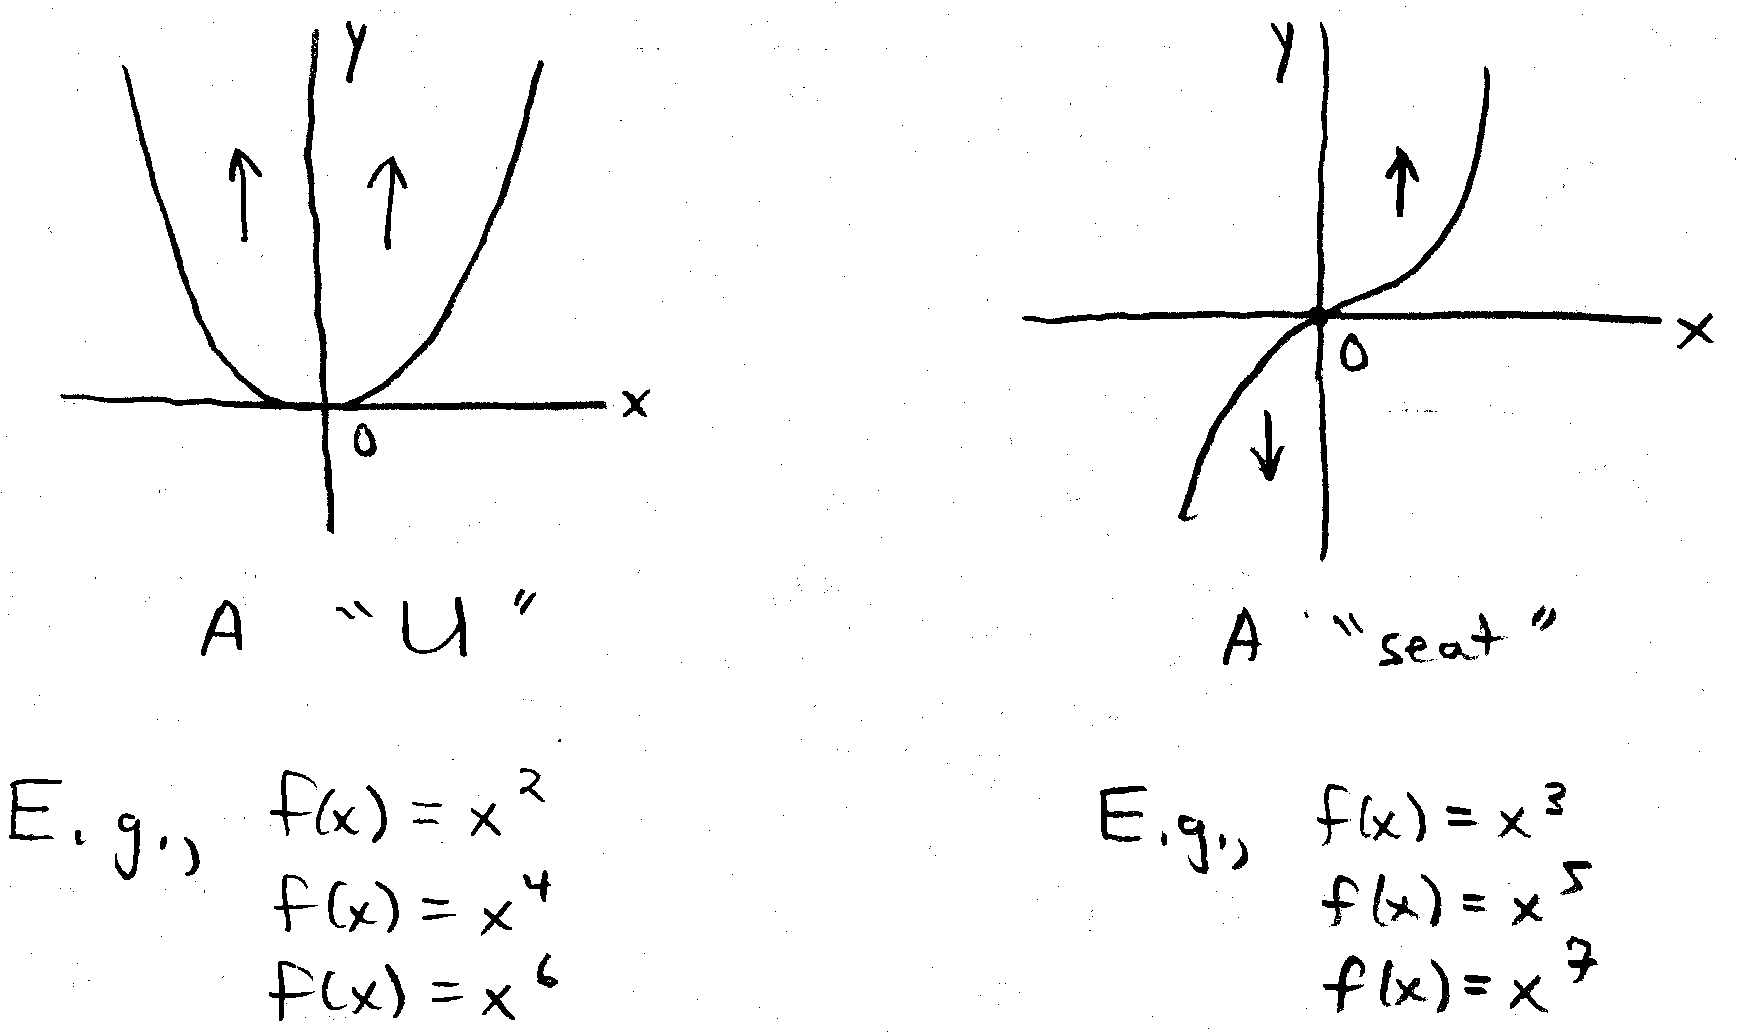 y
x
0
A "U"
E.g., f(x) = x²
f(x) = x⁴
f(x) = x⁶
y
x
0
A "seat"
E.g., f(x) = x³
f(x) = x⁵
f(x) = x⁷